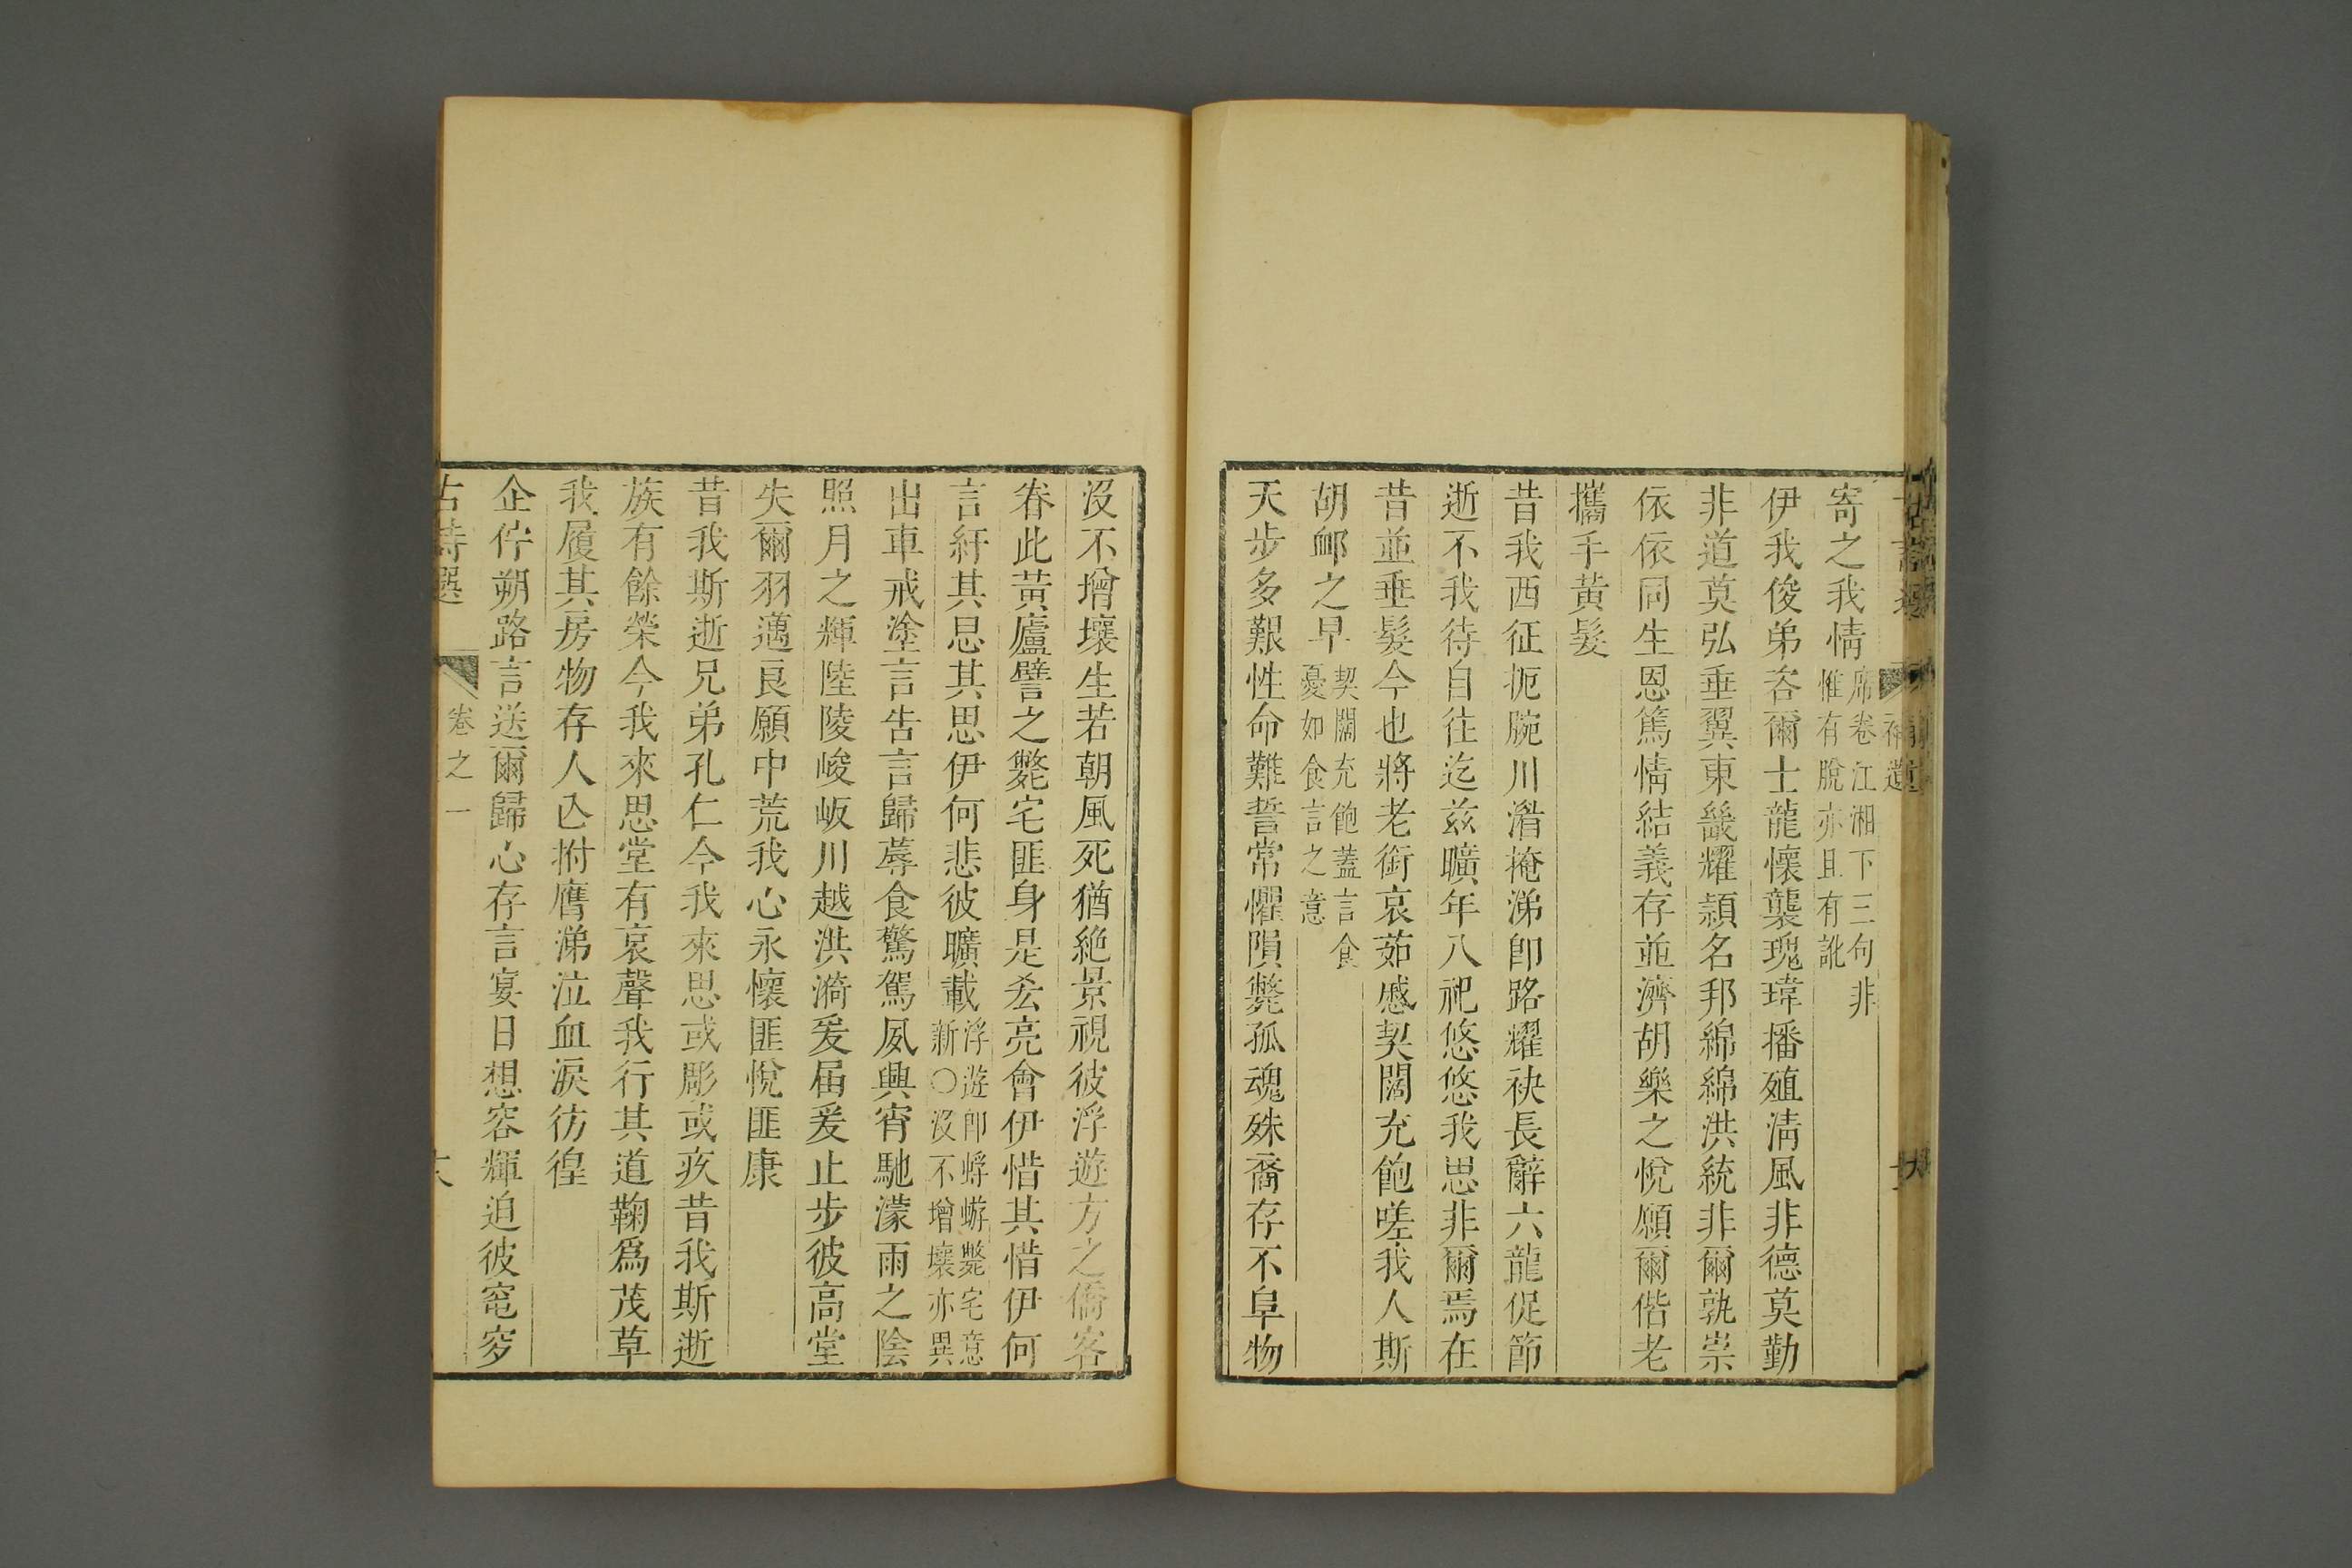 寄之我情席卷江湘下三句非惟有脫亦且有訛
伊我俊弟咨爾士龍懷襲瑰瑋播殖清風非德莫勤
非道莫弘垂翼東畿耀頴名邦綿綿洪統非爾孰崇
依依同生恩篤情結義存並濟胡樂之悅願爾偕老
攜手黃髮
昔我西征扼腕川湄掩涕卽路耀袂長辭六龍促節
逝不我待自往迄茲曠年八祀悠悠我思非爾焉在
昔並垂髮今也將老銜哀茹慼契闊充飽嗟我人斯
胡卹之早契闊充飽蓋言食憂如食言之意
天步多艱性命難誓常懼隕斃孤魂殊裔存不阜物
沒不增壤生若朝風死猶絶景視彼浮遊方之僑客
眷此黃廬譬之斃宅匪身是吝亮會伊惜其惜伊何
言紆其思其思伊何悲彼曠載浮遊卽蜉蝣斃宅意新○沒不增壤亦異
出車戒塗言告言歸蓐食驚駕夙興宵馳濛雨之陰
照月之輝陸陵峻岅川越洪漪爰届爰止步彼高堂
失爾羽邁良願中荒我心永懷匪悅匪康
昔我斯逝兄弟孔仁今我來思或彫或疚昔我斯逝
族有餘榮今我來思堂有哀聲我行其道鞠爲茂草
我履其房物存人亾拊膺涕泣血淚彷徨
企佇朔路言送爾歸心存言宴目想容輝迫彼窀穸
古詩選 卷之一